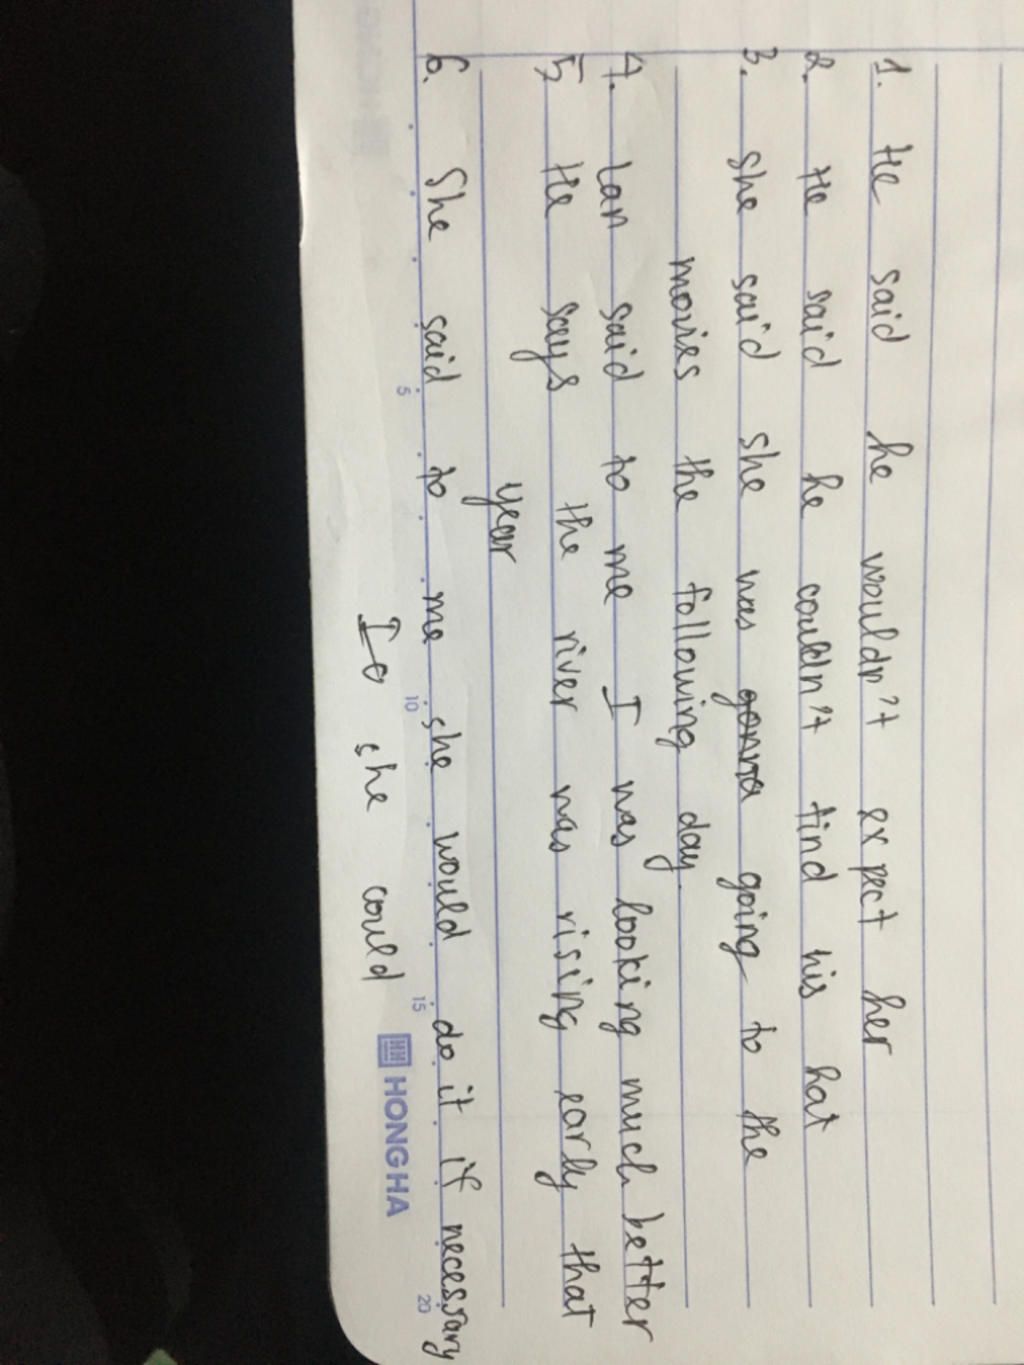 1. He said he wouldn't expect her
2. He said he couldn't find his hat
3. She said she was gonna going to the
movies the following day.
4. Lan said to me I was looking much better
5, He says the river was rising early that
year
6. She said to me she would do it if necessary
she could
5 10 15 20
HONG HA